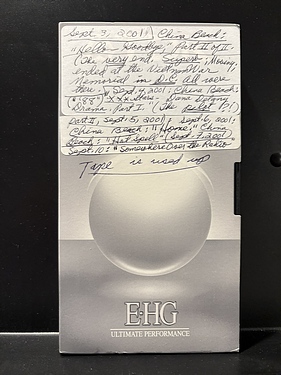 Sept 3, 2001: China Beach:
"Hello Goodbye," Part II of II.
(the very end, Superb; Moving,
ended at the Vietnam War
Memorial in D.C. all were
there. Sept 4, 2001: China Beach:
('88) XXX "Dana Delany
Drama, Part I."
Part II, Sept. 5, 2001, Sept. 6, 2001:
China Beach: "Home," China
Beach: "Hot Spell" Sept. 7, 2001
Sept. 10: "Somewhere Over the Radio
Tape is used up
E·HG
ULTIMATE PERFORMANCE